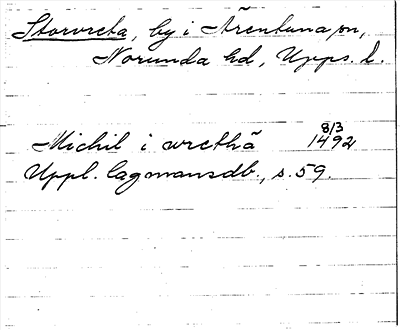 Storvreta, by i Ärentuna sn,
Norunda hd, Upps. l.
Michil i wrethā 8/3 1492
Uppl. lagmansdb., s. 59.